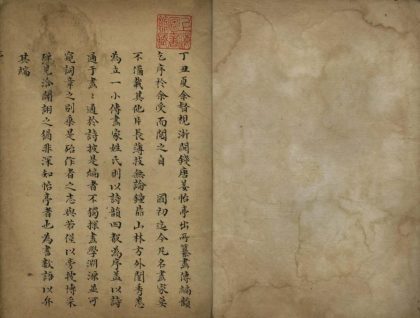 丁丑夏余督視浙閩錢唐姜怡亭出所纂畫傳編韻
乞序於余受而閱之自 國初迄今凡名畫家莫
不備載其他片長薄技無論鐘鼎山林方外閨秀悉
為立一小傳畫家姓氏則以詩韻四聲為序蓋以詩
通于畫畫通於詩披是編者不獨探畫學淵源並可
窺詞章之別乗是殆作者之志與若僅以旁搜博采
殫見洽聞詡之猶非深知怡亭者也為書數語以弁
其端